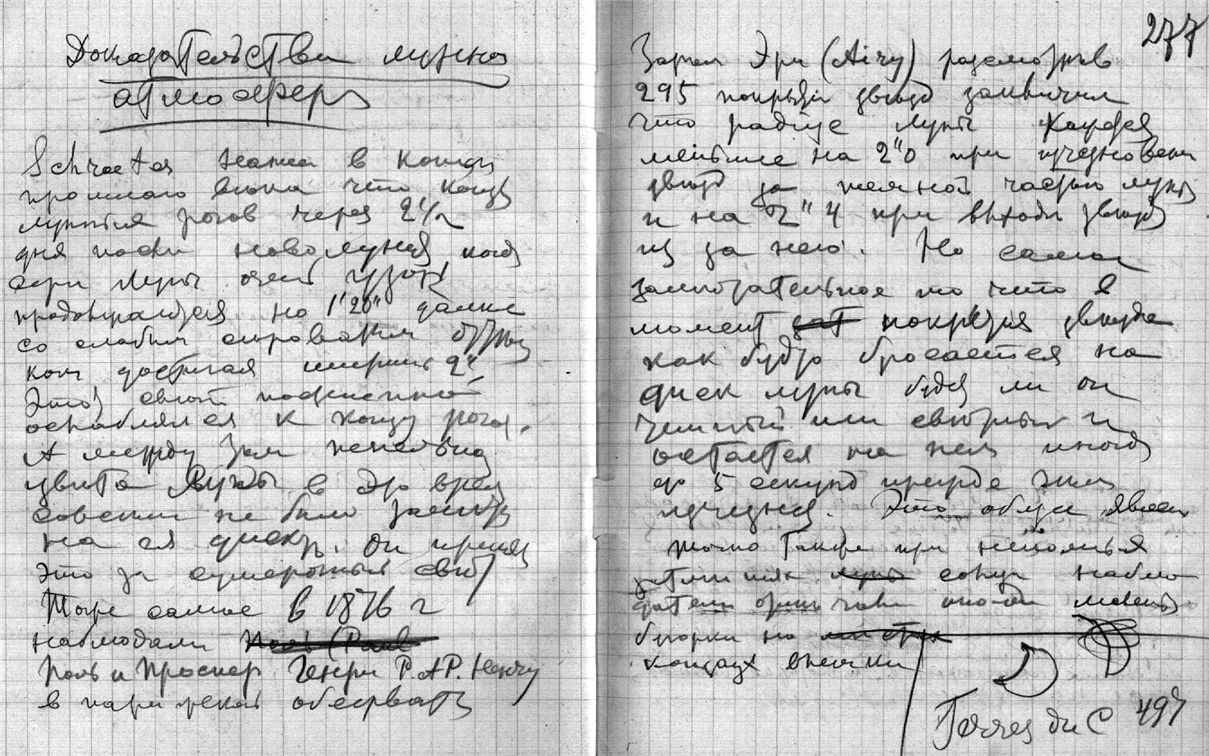 Доказательства лунно
атмосферы
Schroeter в конце
прошлаго века что концы
лунных рогов через 2½
дня после новолуния когда
серп Луны очень узок
продолжаются на 1'20" далее
со слабым сероватым
ком достигая ширины 2"
Этот свет постепенно
ослаблялся к концу рога.
А между тем пепельнаго
цвета Луны в это время
совсем не было заметно
на ея диске. Он принял
это за сумеречный свет
Тоже самое в 1876 г
наблюдали
Поль и Проспер Генри P. et P. Henry
в парижской обсерват
277
Затем Эри (Airy) разсмотрев
295 покрытий звезд заметил
что радиус Луны кажется
меньше на 2"0 при исчезновении
звезд за темной частью луны
и на 2"4 при выходе звезд
из за нею. Но самое
замечательное то что в
момент покрытия звезда
как будто бросается на
диск луны будет ли он
темный или светлый и
остается на нем иногда
до 5 секунд прежде чем
исчезнет. Это
Точно также при неполных
затмениях солнца наблю
датели
на
концах
497